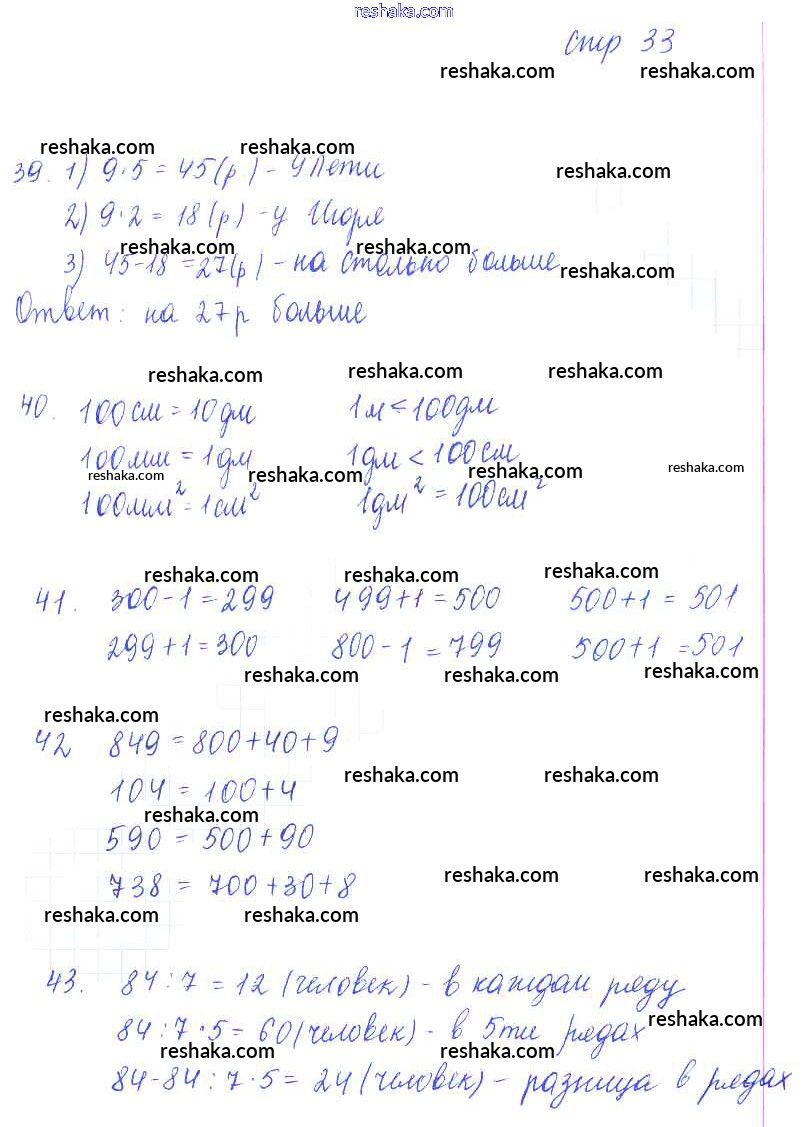 reshaka.com
стр 33
reshaka.com reshaka.com
reshaka.com reshaka.com
39. 1) 9·5 = 45(р) - у Пети
reshaka.com
2) 9·2 = 18(р) - у Игоря
reshaka.com reshaka.com
3) 45-18 = 27(р) - на столько больше
reshaka.com
Ответ: на 27р больше
reshaka.com reshaka.com reshaka.com
40. 100см = 10дм 1м < 100дм
100мм = 1дм 1дм < 100см
reshaka.com reshaka.com reshaka.com reshaka.com
100мм² = 1см² 1дм² = 100см²
reshaka.com reshaka.com reshaka.com
41. 300-1 = 299 499+1 = 500 500+1 = 501
299+1 = 300 800-1 = 799 500+1 = 501
reshaka.com reshaka.com reshaka.com
reshaka.com
42 849 = 800+40+9
reshaka.com reshaka.com
104 = 100+4
reshaka.com
590 = 500+90
738 = 700+30+8
reshaka.com reshaka.com
reshaka.com reshaka.com
43. 84:7 = 12 (человек) - в каждом ряду
84:7·5 = 60 (человек) - в 5ти рядах
reshaka.com
reshaka.com reshaka.com
84-84:7·5 = 24 (человек) - разница в рядах